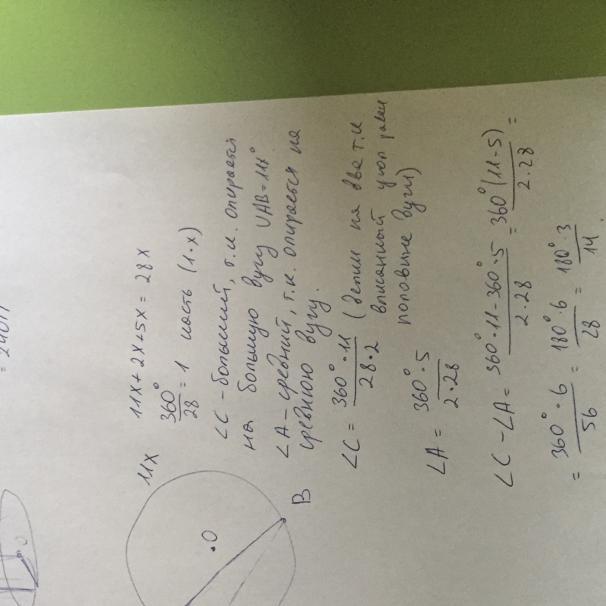 11x
11x + 2x + 5x = 28x
360°/28 = 1 часть (1·x)
∠C - больший, т.к. опирается
на большую дугу ∪AB = 11x°
∠A - средний, т.к. опирается на
среднюю дугу.
∠C = 360°·11/28·2 (делим на два т.к
вписанный угол равен
половине дуги)
∠A = 360°·5/2·28
∠C - ∠A = 360°·11 - 360°·5/2·28 = 360°(11-5)/2·28 =
= 360°·6/56 = 180°·6/28 = 180°·3/14.
O
B